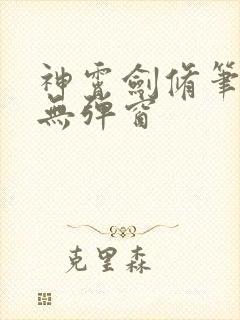 神霄劍脩筆
無彈窗
克里森